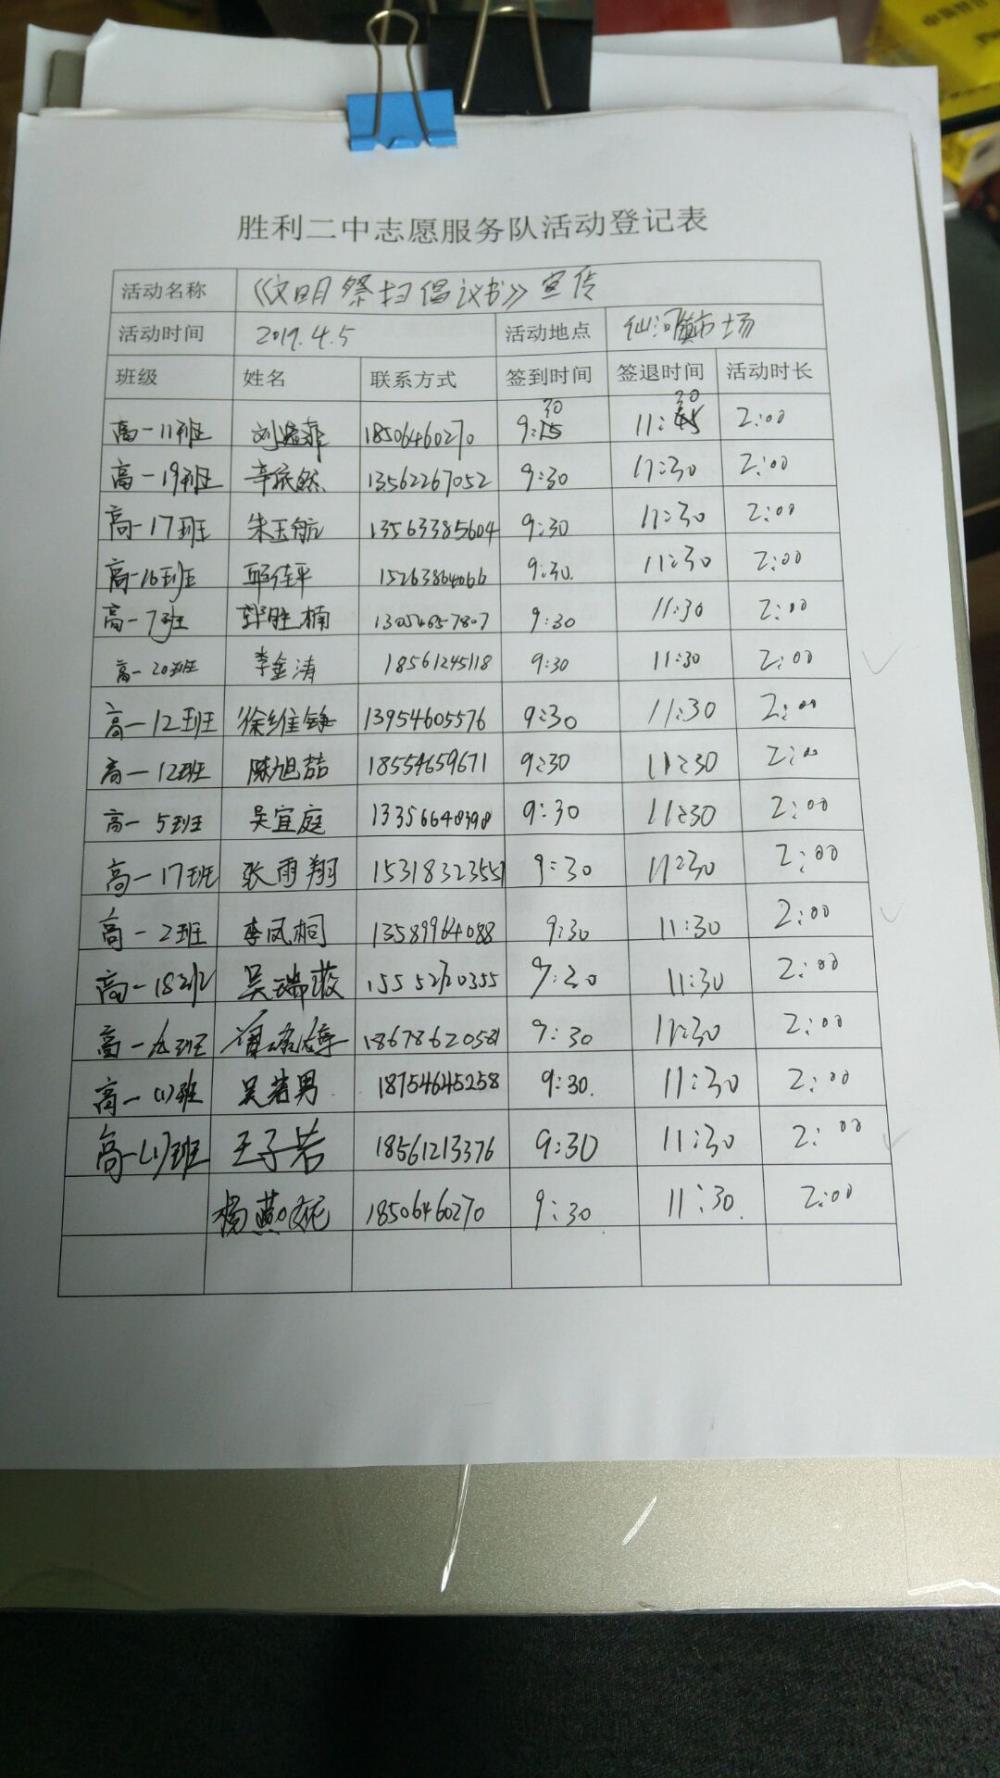 胜利二中志愿服务队活动登记表
活动名称 《文明祭扫倡议书》宣传
活动时间 2019.4.5 活动地点 仙河镇市场
班级 姓名 联系方式 签到时间 签退时间 活动时长
高一11班 18506460270 9:30 11:30 2:00
高一19班 辛依然 13562267052 9:30 11:30 2:00
高一17班 朱玉航 13563385604 9:30 11:30 2:00
高一16班 邱佳平 15263864066 9:30. 11:30 2:00
高一7班 郭胜楠 13054657807 9:30 11:30 2:00
高一20班 李金涛 18561245118 9:30 11:30 2:00
高一12班 徐维铮 13954605576 9:30 11:30 2:00
高一12班 陈旭喆 18554659671 9:30 11:30 2:00
高一5班 吴宜庭 13356648398 9:30 11:30 2:00
高一17班 张雨翔 15318323551 9:30 11:30 2:00
高一2班 李凤桐 13589964088 9:30 11:30 2:00
高一18班 吴瑞璇 15552120355 9:30 11:30 2:00
高一 班 18678620581 9:30 11:30 2:00
高一(1)班 吴若男 18754645258 9:30. 11:30 2:00
高一(1)班 王子若 18561213376 9:30 11:30 2:00
杨燕妮 18506460270 9:30 11:30. 2:00